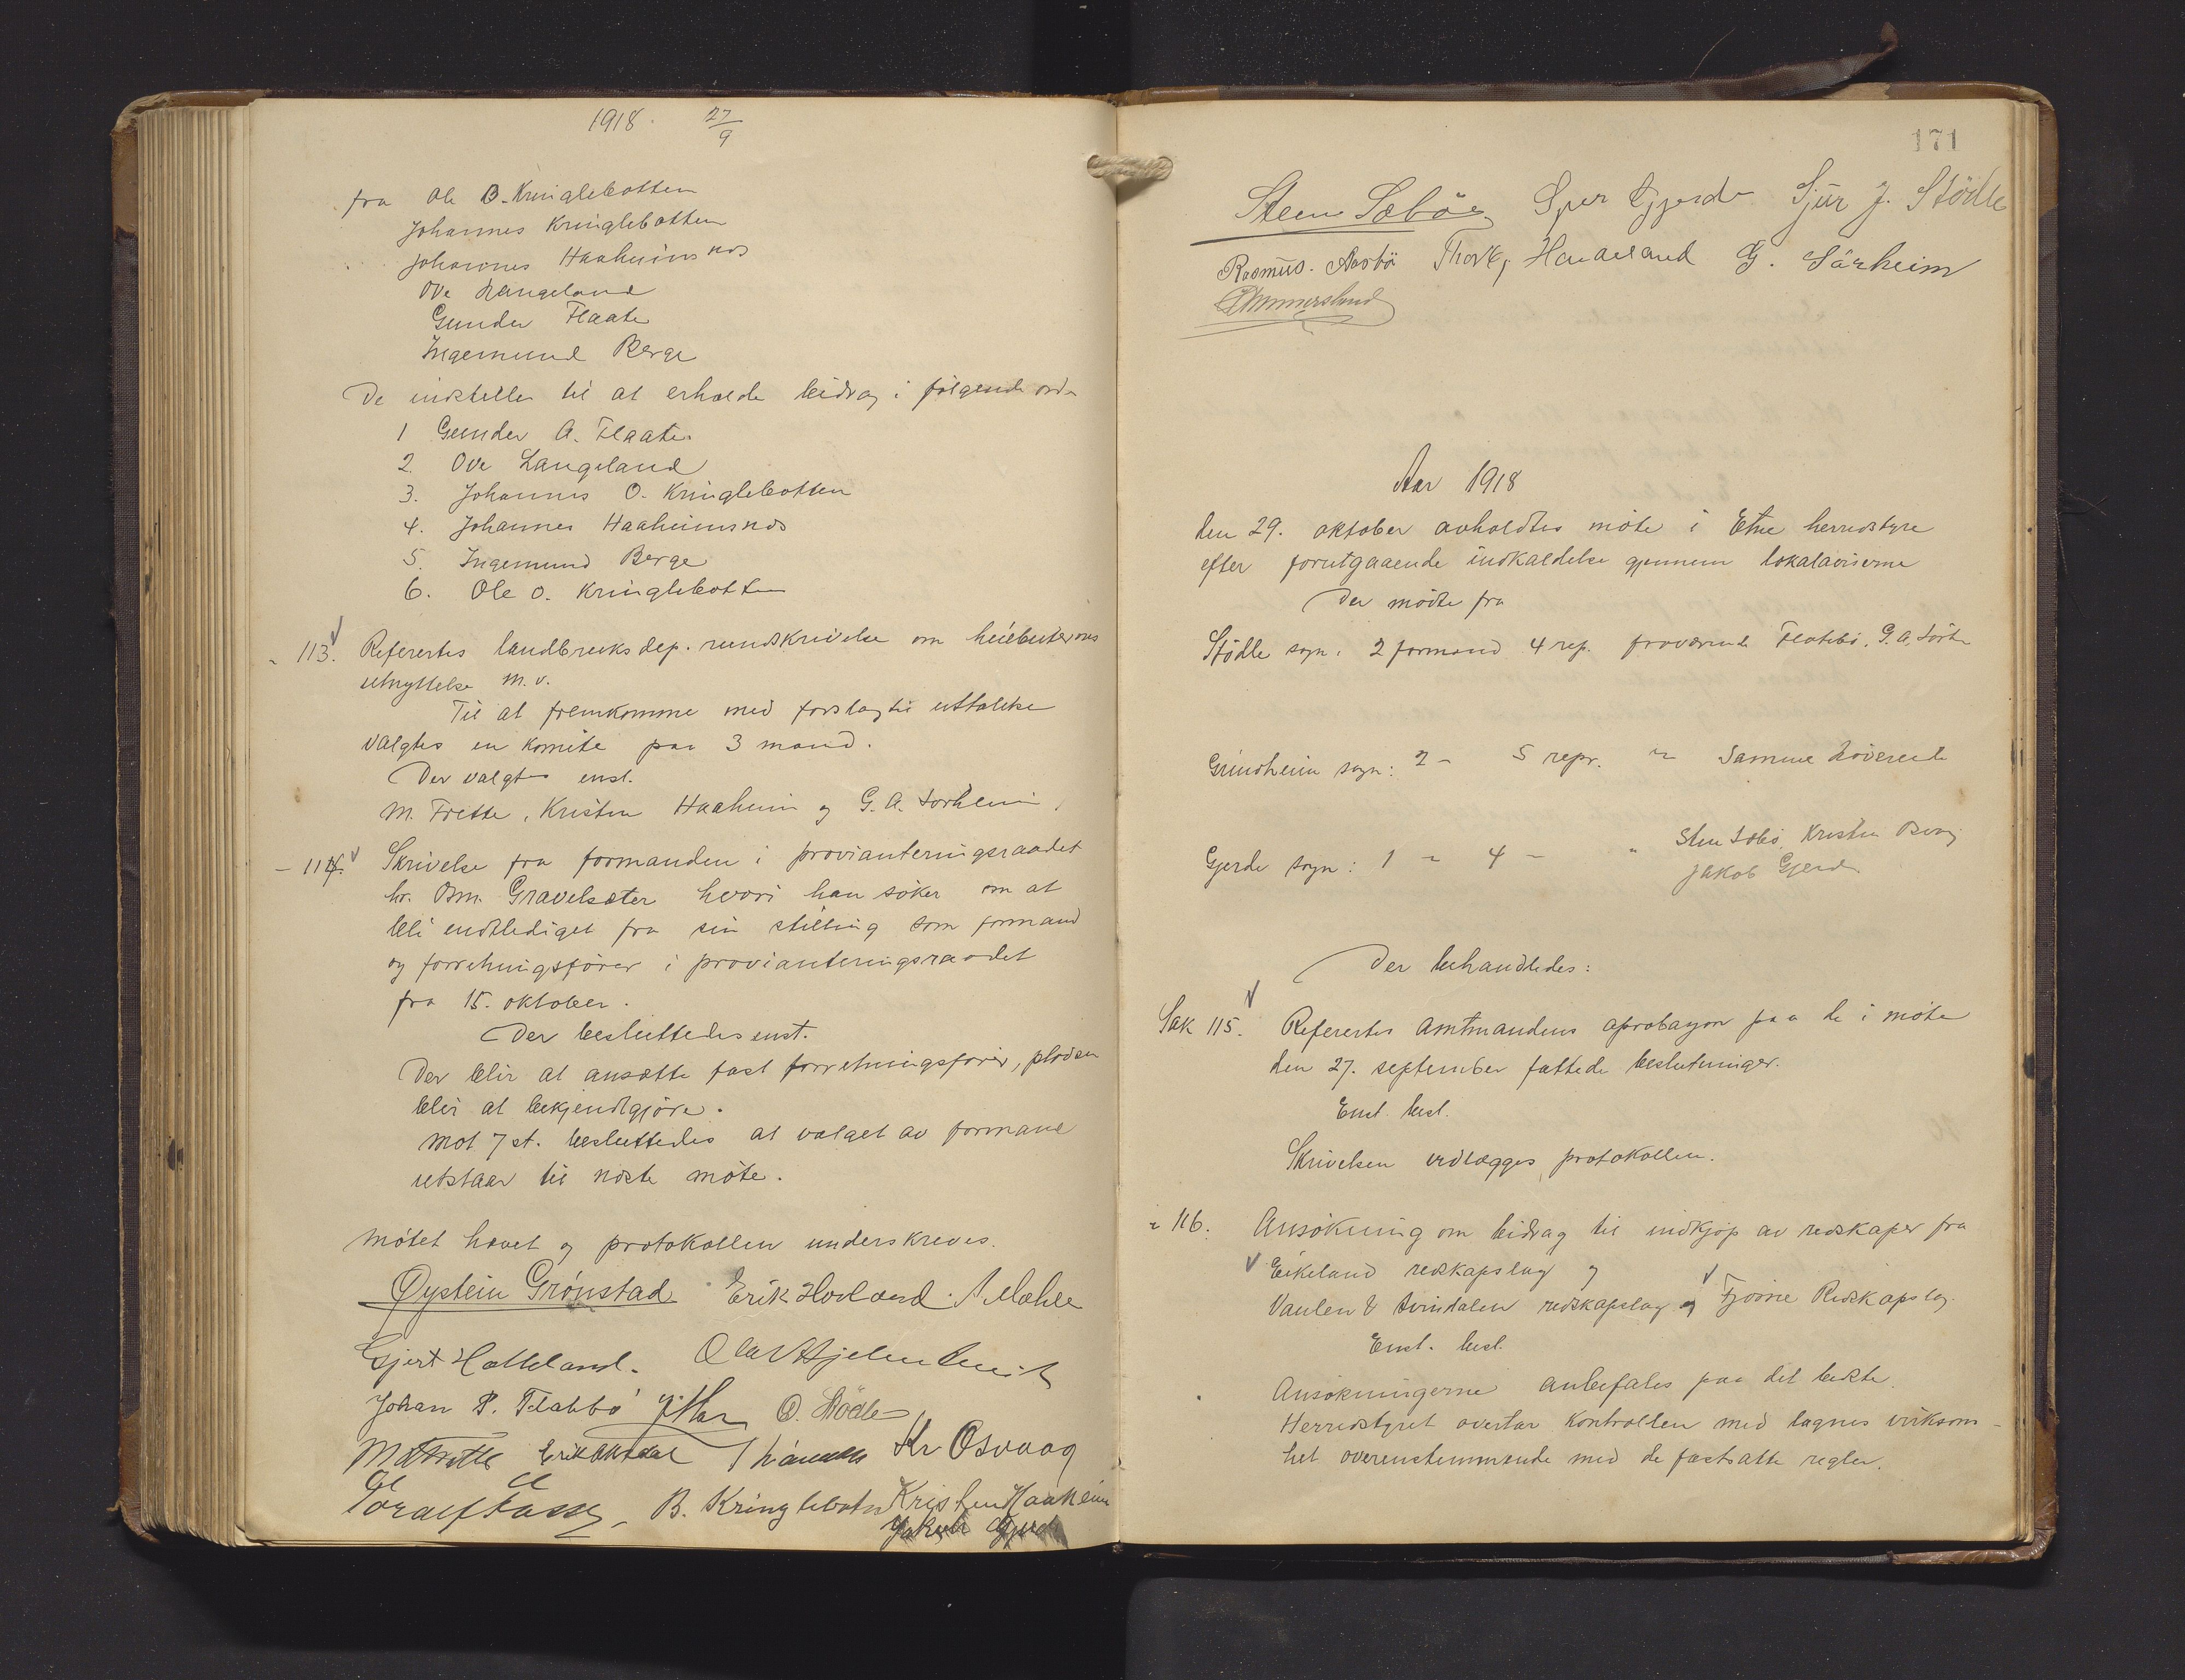 1918. 27/9
fra Ole O. Kringlebotten
Johannes Kringlebotten
Johannes Haaheimsnes
Ove Langeland
Gunder Flaate
Ingemund Berge
De indstilles til at erholde bidrag i følgende orden
1 Gunder A. Flaate
2. Ove Langeland
3. Johannes O. Kringlebotten
4. Johannes Haaheimsnes
5. Ingemund Berge
6. Ole O. Kringlebotten
" 113. Referertes landbruksdep. rundskrivelse om
utnyttelse m.v.
Til at fremkomme med forslag til uttalelse
valgtes en komite paa 3 mand.
Der valgtes enst.
M. Frette, Kristen Haaheim og G. A. Sørheim,
- 114. Skrivelse fra formanden i provianteringsraadet
hr. Gravelsæter hvori han søker om at
bli endtlediget fra sin stilling som formand
og forretningsfører i provianteringsraadet
fra 15. oktober.
Der besluttedes enst.
Der blir at ansætte fast forretningsfører, pladsen
blir at bekjendtgjøre.
Mot 7 st. besluttedes at valget av formand
utstaar til næste møte.
Møtet hævet og protokollen underskreves.
Øystein Grønstad Erik Hovland. A Mæhle
Gjert Hatteland. Olav Hjelmtveit
Johan P. Flatebø O. Stødle
M Frette Kr Osvaag
B. Kringlebotn Kristen Haaheim
Jakob Gjerde
171
Steen Sæbøe Sjur Gjerde Sjur J. Stødle
Rasmus Aasbø Haaland G. Särheim
Aar 1918
den 29. oktober avholdtes møte i Etne herredstyre
efter forutgaaende indkaldelse gjennem lokalaviserne
Der mødte fra
Stødle sogn: 2 formænd 4 rep. fraværende Flatebø, G. A. Sørh.
Grindheim sogn: 2 - 5 repr. " Samme
Gjerde sogn: 1 " 4 - " Sten Sæbø, Kristen Osvåg
Jakob Gjerde
Der behandledes:
Sak 115. Referertes Amtmandens aprobasjon paa de i møte
den 27. september fattede beslutninger.
Enst. besl.
Skrivelsen vedlægges protokollen.
" 116. Ansøkning om bidrag til indkjøp av redskaper fra
Eikeland redskapslag og
Vaulen & redskapslag og Fjøsne Redskapslag.
Enst. besl.
Ansøkningerne anbefales paa det bedste.
Herredstyret overtar kontrollen med lagenes virksom-
het overenstemmende med de fastsatte regler.